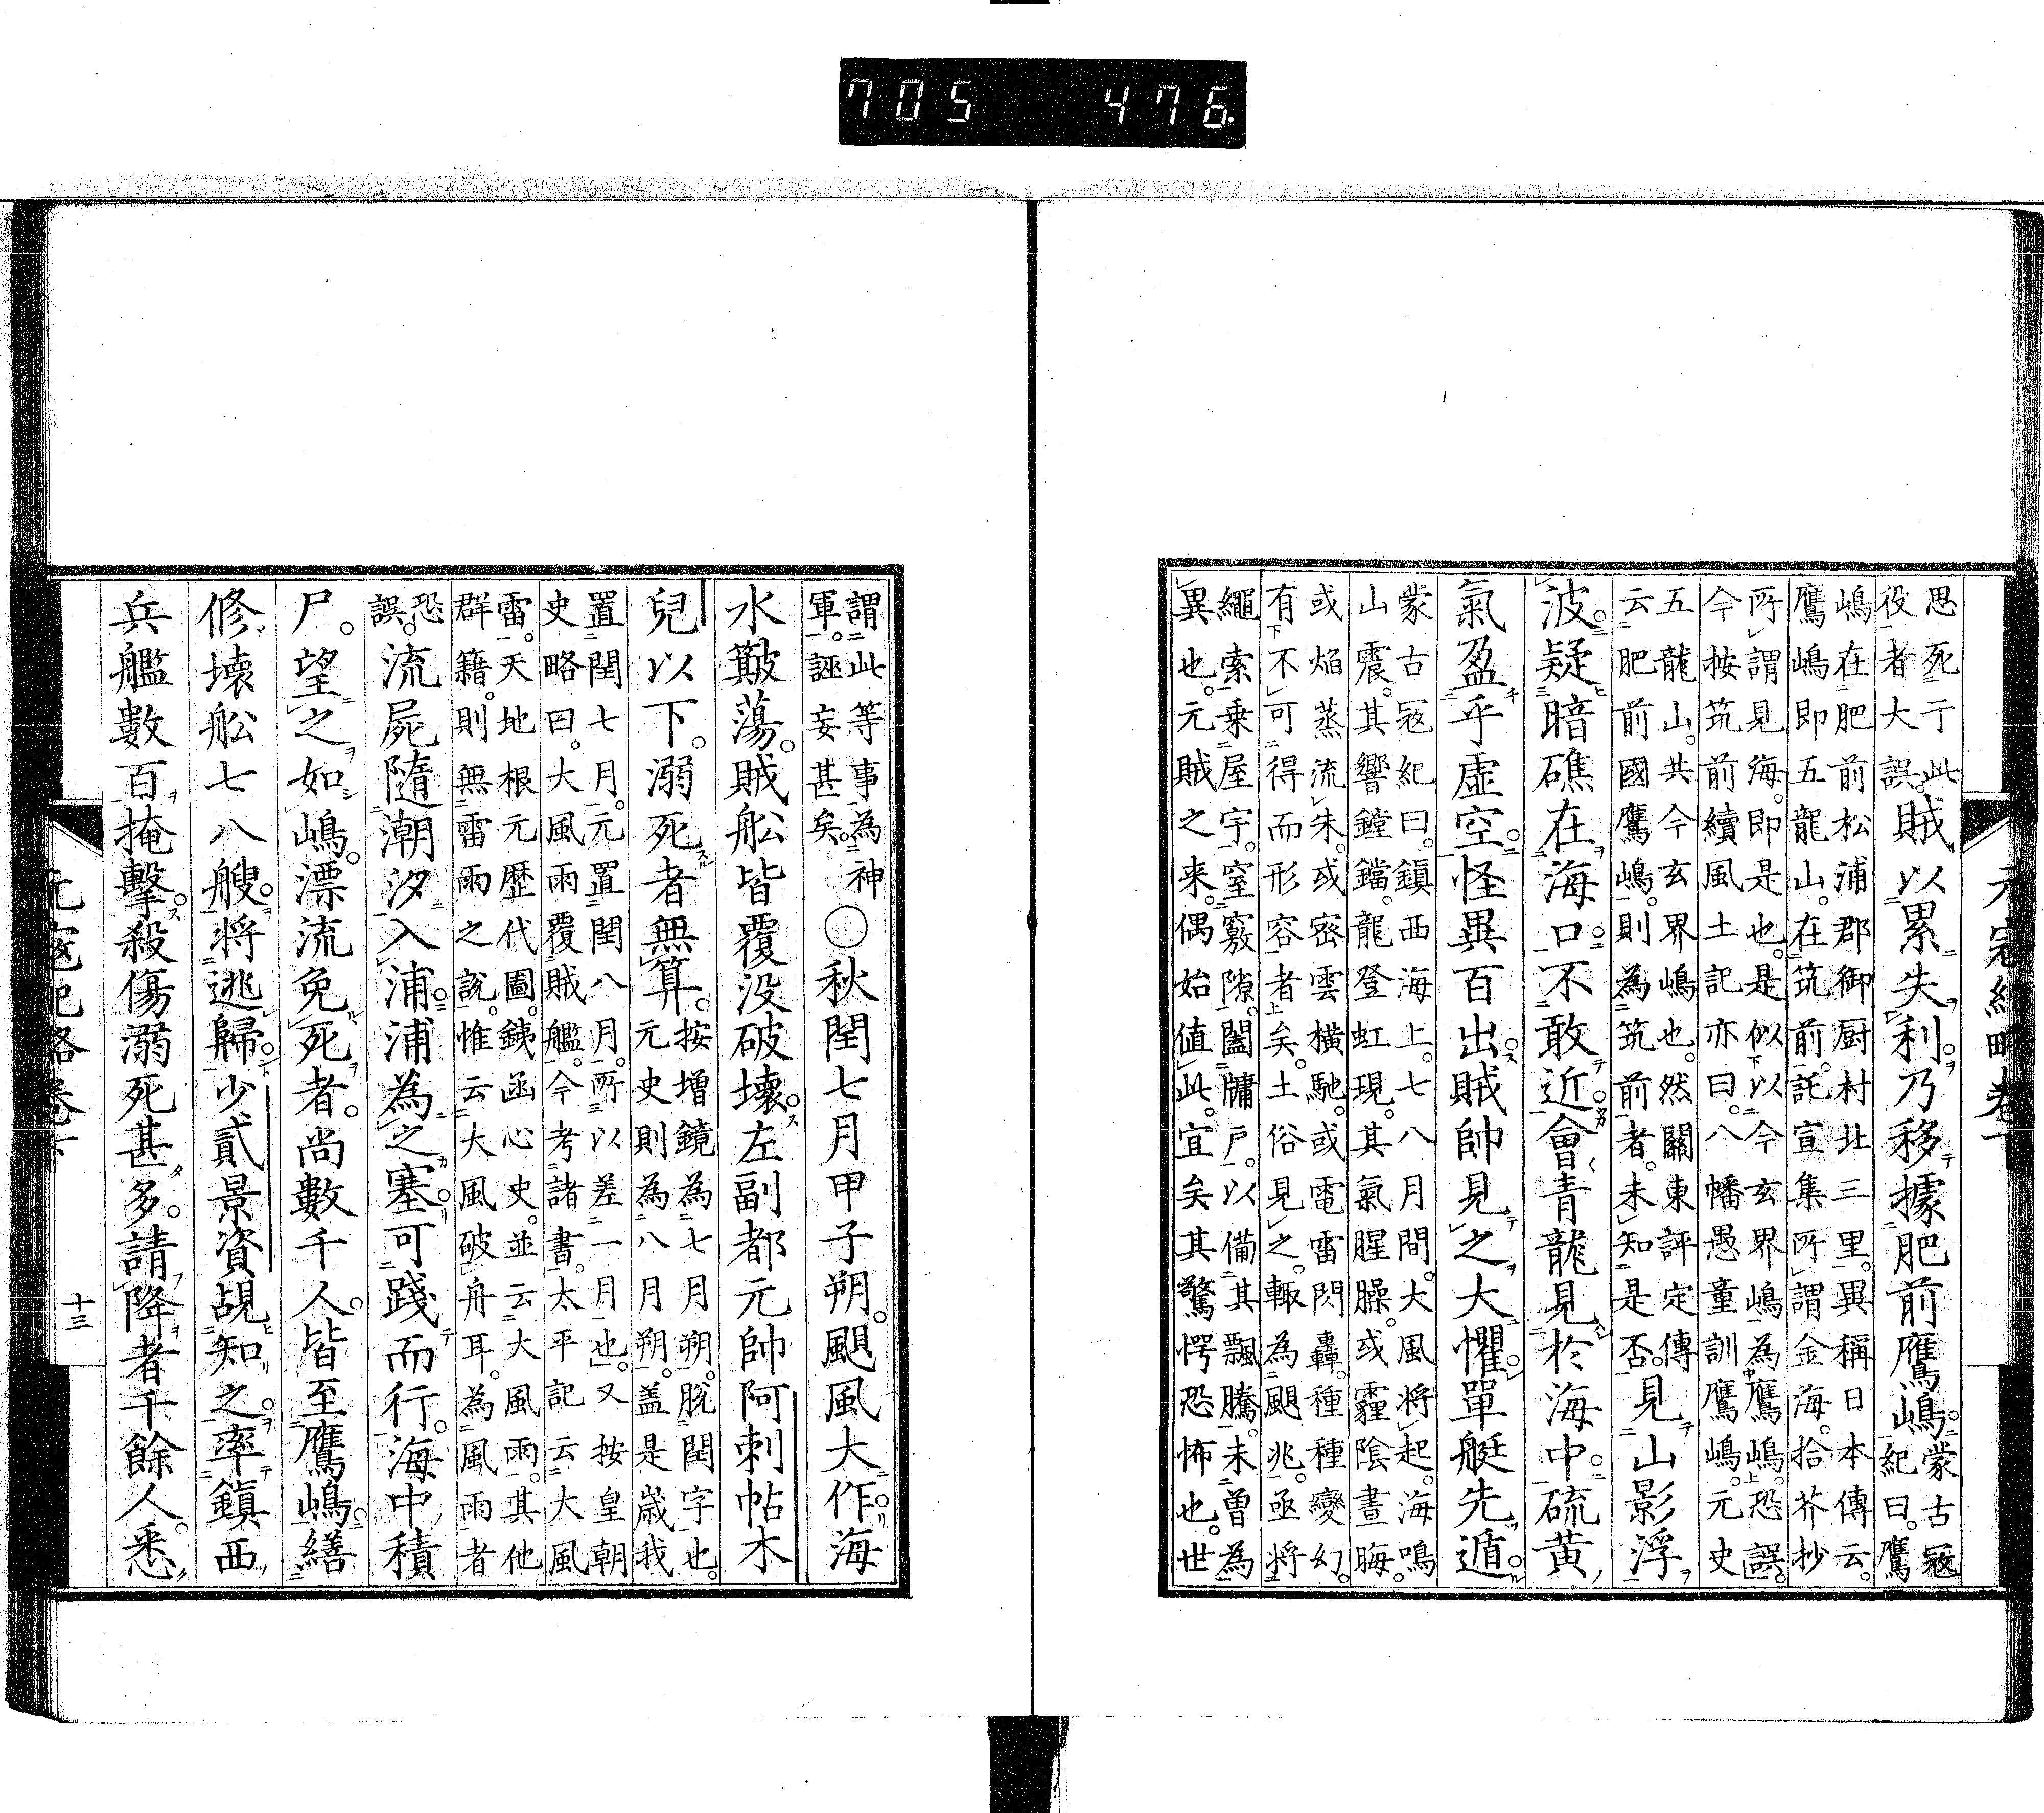 705 476
元寇紀略卷下
思死于此
役者大誤。賊以累失利。乃移據肥前鷹嶋。蒙古寇
紀曰。鷹
嶋在肥前松浦郡御厨村北三里。異稱日本傳云。
鷹嶋即五龍山。在筑前。託宣集所謂金海。拾芥抄
所謂見海。即是也。是似以今玄界嶋為鷹嶋。恐誤。
今按筑前續風土記亦曰。八幡愚童訓鷹嶋。元史
五龍山。共今玄界嶋也。然關東評定傳
云肥前國鷹嶋。則為筑前者。未知是否。見山影浮
波疑暗礁在海口。不敢近。會青龍見於海中。硫黄
氣盈乎虛空。怪異百出。賊帥見之大懼。單艇先遁
蒙古寇紀曰。鎮西海上。七八月間。大風將起。海鳴
山震。其響鏜鎝。龍登虹現。其氣腥臊。或霾陰晝晦。
或焔蒸流朱。或密雲橫馳。或電雷閃轟。種種變幻。
有不可得而形容者矣。土俗見之。輙為颶兆。亟將
繩索乗屋宇。窒竅隙。闔牗戸。以備其飄騰。未曽為
異也。元賊之来。偶始值此。宜矣其驚愕恐怖也。世
謂此等事為神
軍。誣妄甚矣。○秋閏七月甲子朔。颶風大作。海
水簸蕩。賊舩皆覆没破壞。左副都元帥阿刺帖木
兒以下。溺死者無算。按增鏡為七月朔。脱閏字也。
元史則為八月朔。盖是歳我
置閏七月。元置閏八月。所以差一月也。又按皇朝
史略曰。大風雨覆賊艦。今考諸書。太平記云大風
雷。天地根元歷代圖。銕函心史。並云大風雨。其他
群籍。則無雷雨之說。惟云大風破舟耳。為風雨者
恐
誤。流屍隨潮汐入浦。浦為之塞。可踐而行。海中積
尸。望之如嶋。漂流免死者。尚數千人。皆至鷹嶋。繕
修壊舩七八艘。將逃歸。少貳景資覘知之。率鎮西
兵艦數百掩擊。殺傷溺死甚多。請降者千餘人。悉
元寇紀略卷下
十三